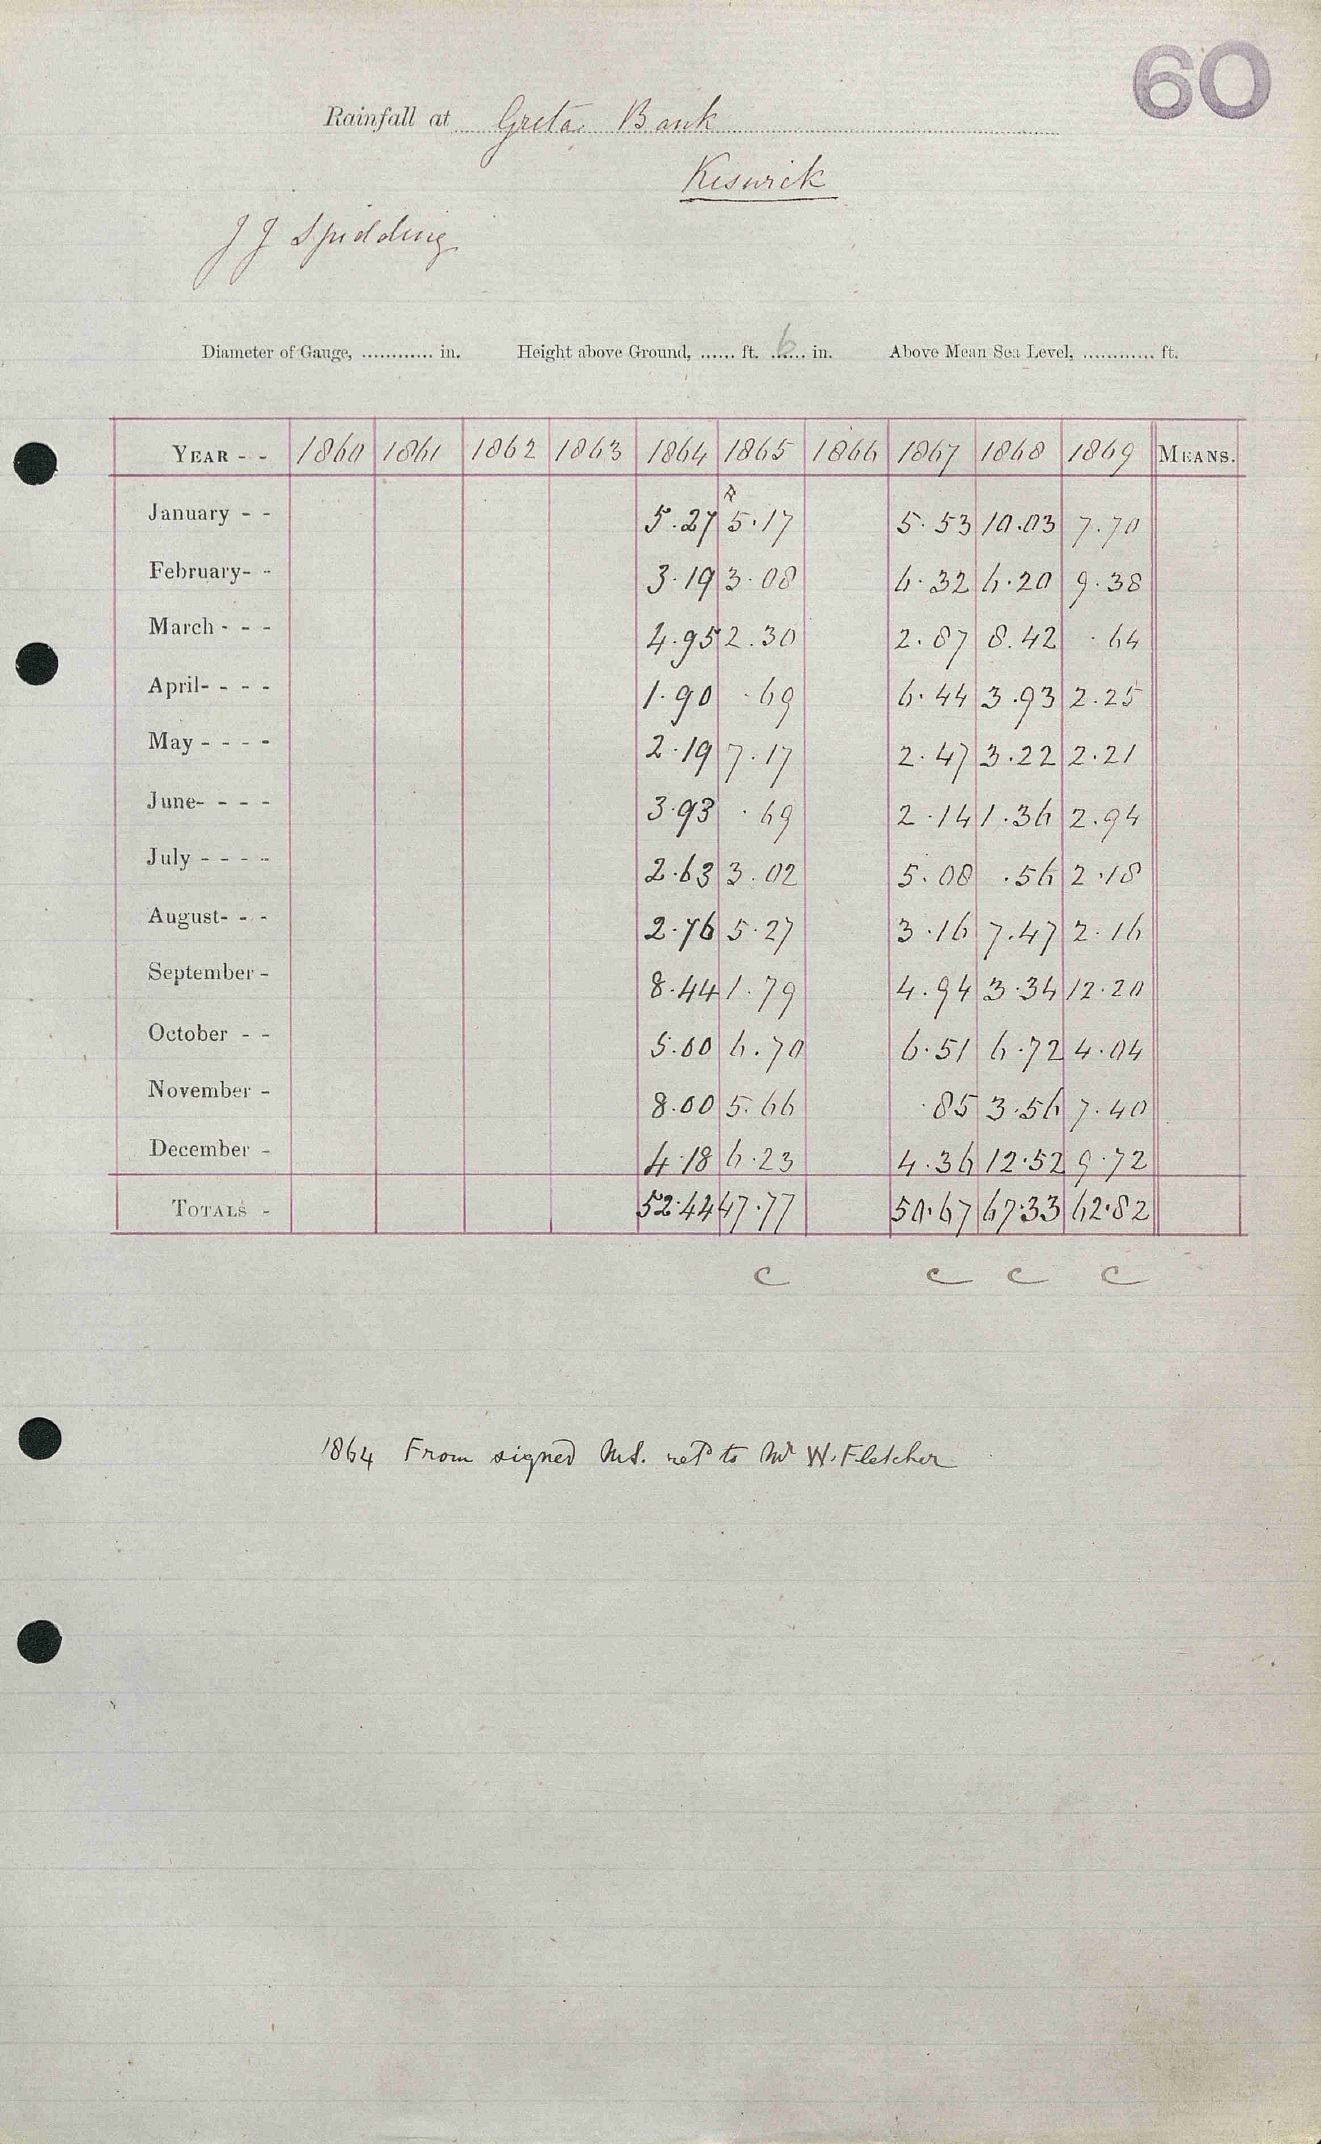 60
Rainfall at Greta Bank
Keswick
J J Spedding
Diameter of Gauge, ............ in. Height above Ground, ...... ft. 6 in. Above Mean Sea Level, ............ ft.
YEAR - - 1860 1861 1862 1863 1864 1865 1866 1867 1868 1869 MEANS.
January - - 5.27 5.17 5.53 10.03 7.70
February- - 3.19 3.08 6.32 6.20 9.38
March - - - 4.95 2.30 2.87 8.42 .64
April- - - - 1.90 .69 6.44 3.93 2.25
May - - - - 2.19 7.17 2.47 3.22 2.21
June- - - - 3.93 .69 2.14 1.36 2.94
July - - - - 2.63 3.02 5.08 .56 2.18
August- - - 2.76 5.27 3.16 7.47 2.16
September - 8.44 1.79 4.94 3.34 12.20
October - - 5.00 6.70 6.51 6.72 4.04
November - 8.00 5.66 .85 3.56 7.40
December - 4.18 6.23 4.36 12.52 9.72
TOTALS - 52.44 47.77 50.67 67.33 62.82
c c c c
1864 From signed MS. retd to Mr W. Fletcher